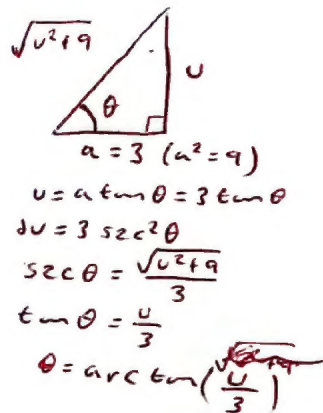 √(u²+9)
u
θ
a = 3 (a² = 9)
u = a tan θ = 3 tan θ
du = 3 sec² θ
sec θ = √(u²+9)/3
tan θ = u/3
θ = arc tan(u/3)